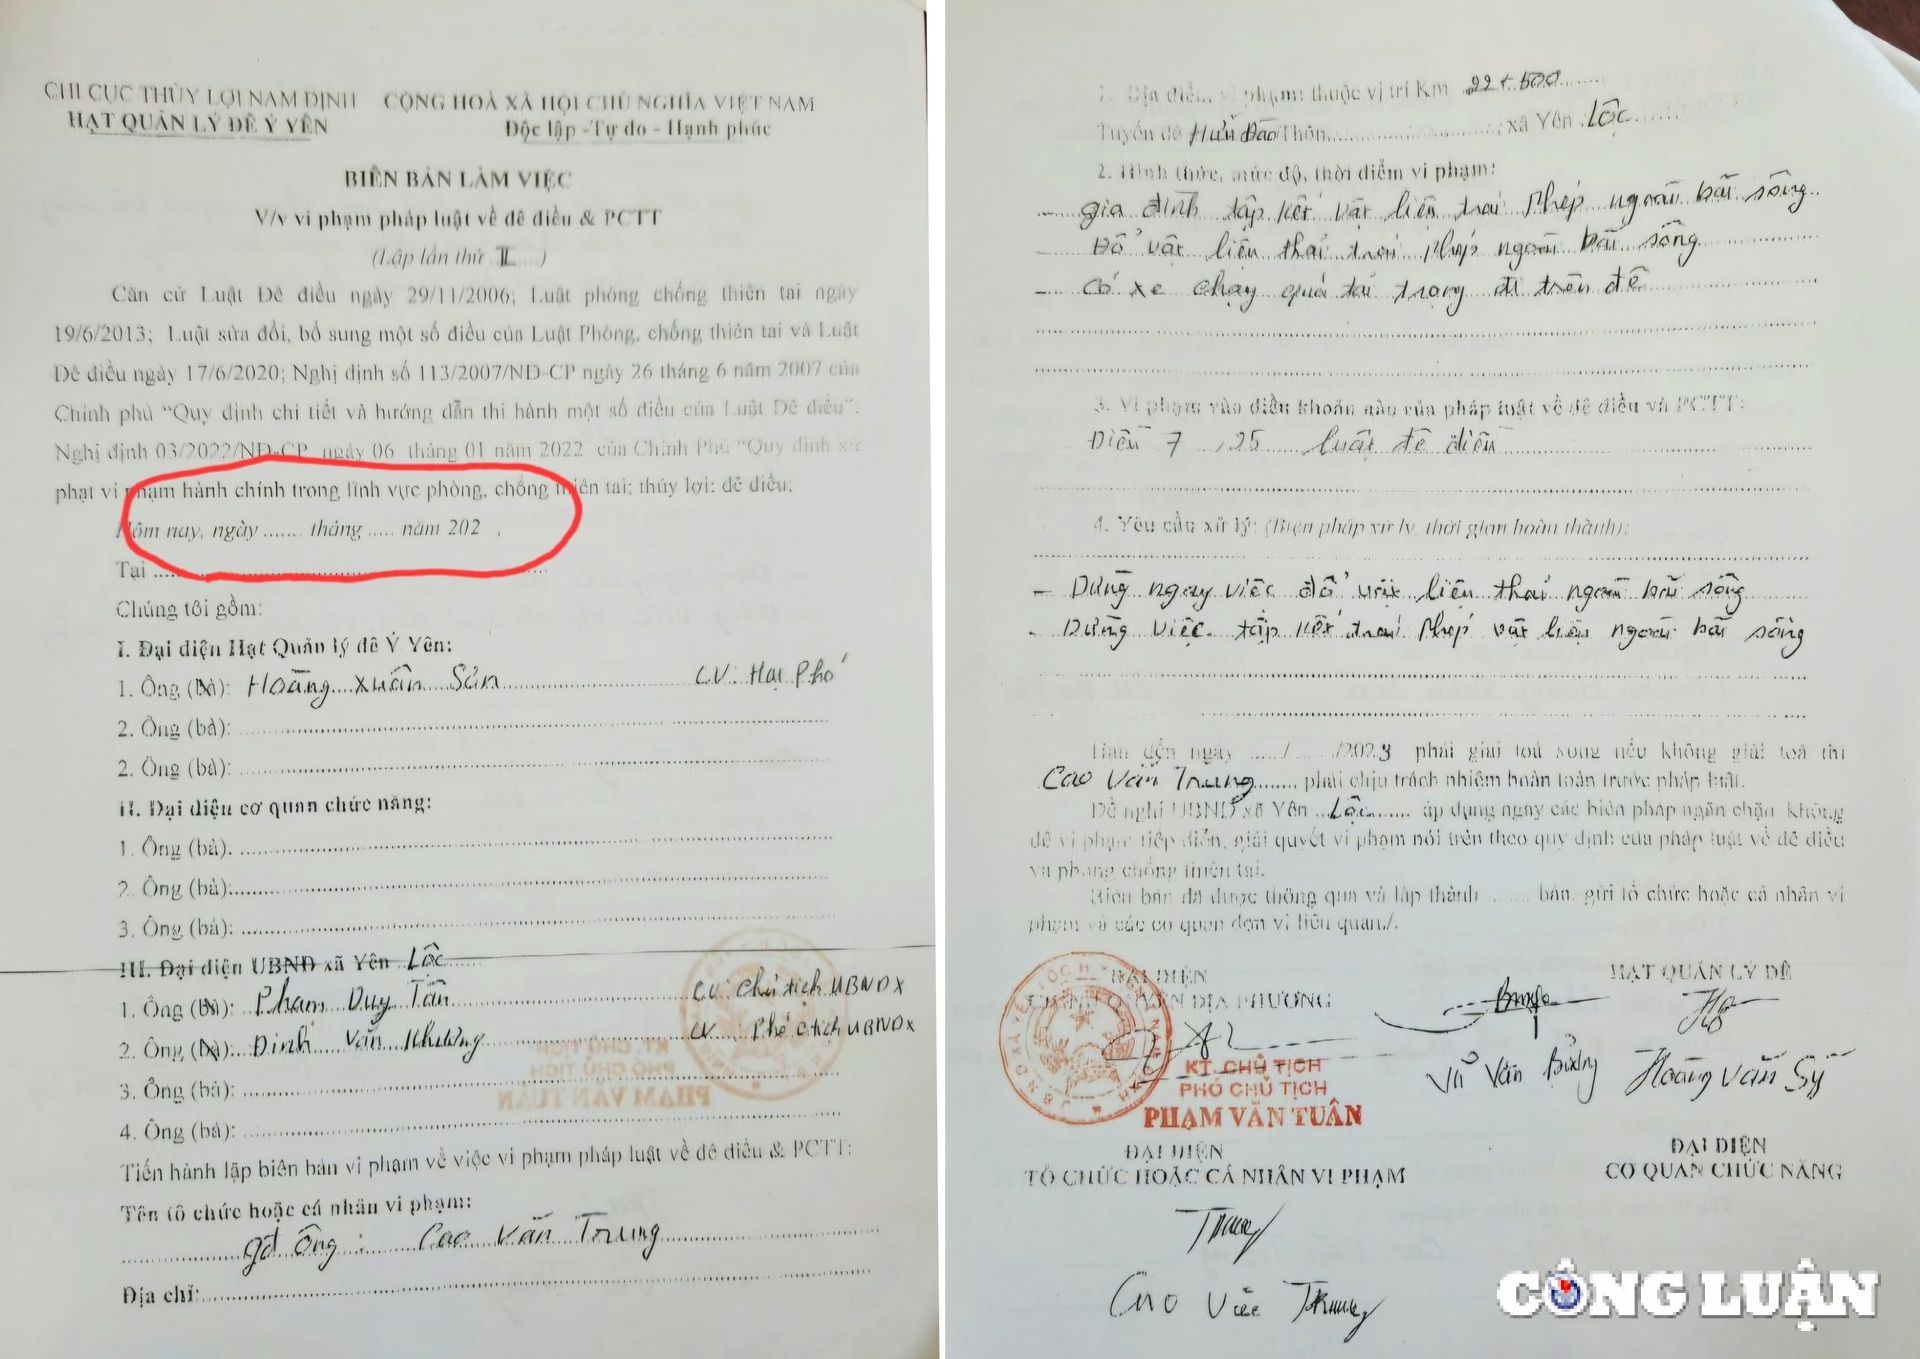 CHI CỤC THỦY LỢI NAM ĐỊNH
HẠT QUẢN LÝ ĐÊ Ý YÊN
CỘNG HOÀ XÃ HỘI CHỦ NGHĨA VIỆT NAM
Độc lập -Tự do - Hạnh phúc
BIÊN BẢN LÀM VIỆC
V/v vi phạm pháp luật về đê điều & PCTT
(Lập lần thứ I......)
Căn cứ Luật Đê điều ngày 29/11/2006; Luật phòng chống thiên tai ngày
19/6/2013; Luật sửa đổi, bổ sung một số điều của Luật Phòng, chống thiên tai và Luật
Đê điều ngày 17/6/2020; Nghị định số 113/2007/NĐ-CP ngày 26 tháng 6 năm 2007 của
Chính phủ “Quy định chi tiết và hướng dẫn thi hành một số điều của Luật Đê điều”.
Nghị định 03/2022/NĐ-CP ngày 06 tháng 01 năm 2022 của Chính Phủ “Quy định xử
phạt vi phạm hành chính trong lĩnh vực phòng, chống thiên tai; thủy lợi; đê điều;
Hôm nay, ngày ....... tháng ..... năm 202 .
Tại ...................................................
Chúng tôi gồm:
I. Đại diện Hạt Quản lý đê Ý Yên:
1. Ông (bà): Hoàng Xuân Sản CV: Hạt Phó
2. Ông (bà): ...................................................
2. Ông (bà): ...................................................
II. Đại diện cơ quan chức năng:
1. Ông (bà). ...................................................
2. Ông (bà):...................................................
3. Ông (bà): ...................................................
III. Đại diện UBND xã Yên Lộc
1. Ông (bà): Phạm Duy Tân CV: Chủ tịch UBNDX
2. Ông (bà): Đinh Văn Khương CV: Phó C tịch UBNDX
3. Ông (bà): ...................................................
4. Ông (bà): ...................................................
Tiến hành lập biên bản vi phạm về việc vi phạm pháp luật về đê điều & PCTT:
Tên tổ chức hoặc cá nhân vi phạm:
gđ Ông : Cao Văn Trung
Địa chỉ:...................................................
1. Địa điểm vi phạm: thuộc vị trí Km 22+500
Tuyến đê Hữu Đào Thôn..............................; xã Yên Lộc
2. Hình thức, mức độ, thời điểm vi phạm:
- gia đình tập kết vật liệu trái phép ngoài bãi sông
- Đổ vật liệu thải trái phép ngoài bãi sông
- Có xe chạy quá tải trọng đi trên đê
3. Vi phạm vào điều khoản nào của pháp luật về đê điều và PCTT:
Điều 7 , 25 luật đê điều
4. Yêu cầu xử lý: (Biện pháp xử lý, thời gian hoàn thành):
- Dừng ngay việc đổ vật liệu thải ngoài bãi sông
- Dừng việc tập kết trái phép vật liệu ngoài bãi sông
Hạn đến ngày ....../ ....../2023 phải giải toả xong nếu không giải toả thì
Cao Văn Trung ........ phải chịu trách nhiệm hoàn toàn trước pháp luật.
Đề nghị UBND xã Yên Lộc áp dụng ngay các biện pháp ngăn chặn không
để vi phạm tiếp diễn, giải quyết vi phạm nói trên theo quy định của pháp luật về đê điều
và phòng chống thiên tai.
Biên bản đã được thông qua và lập thành ....... bản, gửi tổ chức hoặc cá nhân vi
phạm và các cơ quan đơn vị liên quan./.
ĐẠI DIỆN
CHÍNH QUYỀN ĐỊA PHƯƠNG
HẠT QUẢN LÝ ĐÊ
KT. CHỦ TỊCH
PHÓ CHỦ TỊCH
PHẠM VĂN TUÂN
Vũ Văn Hoàng Văn Sỹ
ĐẠI DIỆN
TỔ CHỨC HOẶC CÁ NHÂN VI PHẠM
ĐẠI DIỆN
CƠ QUAN CHỨC NĂNG
Trung
Cao Trung
CÔNG LUẬN